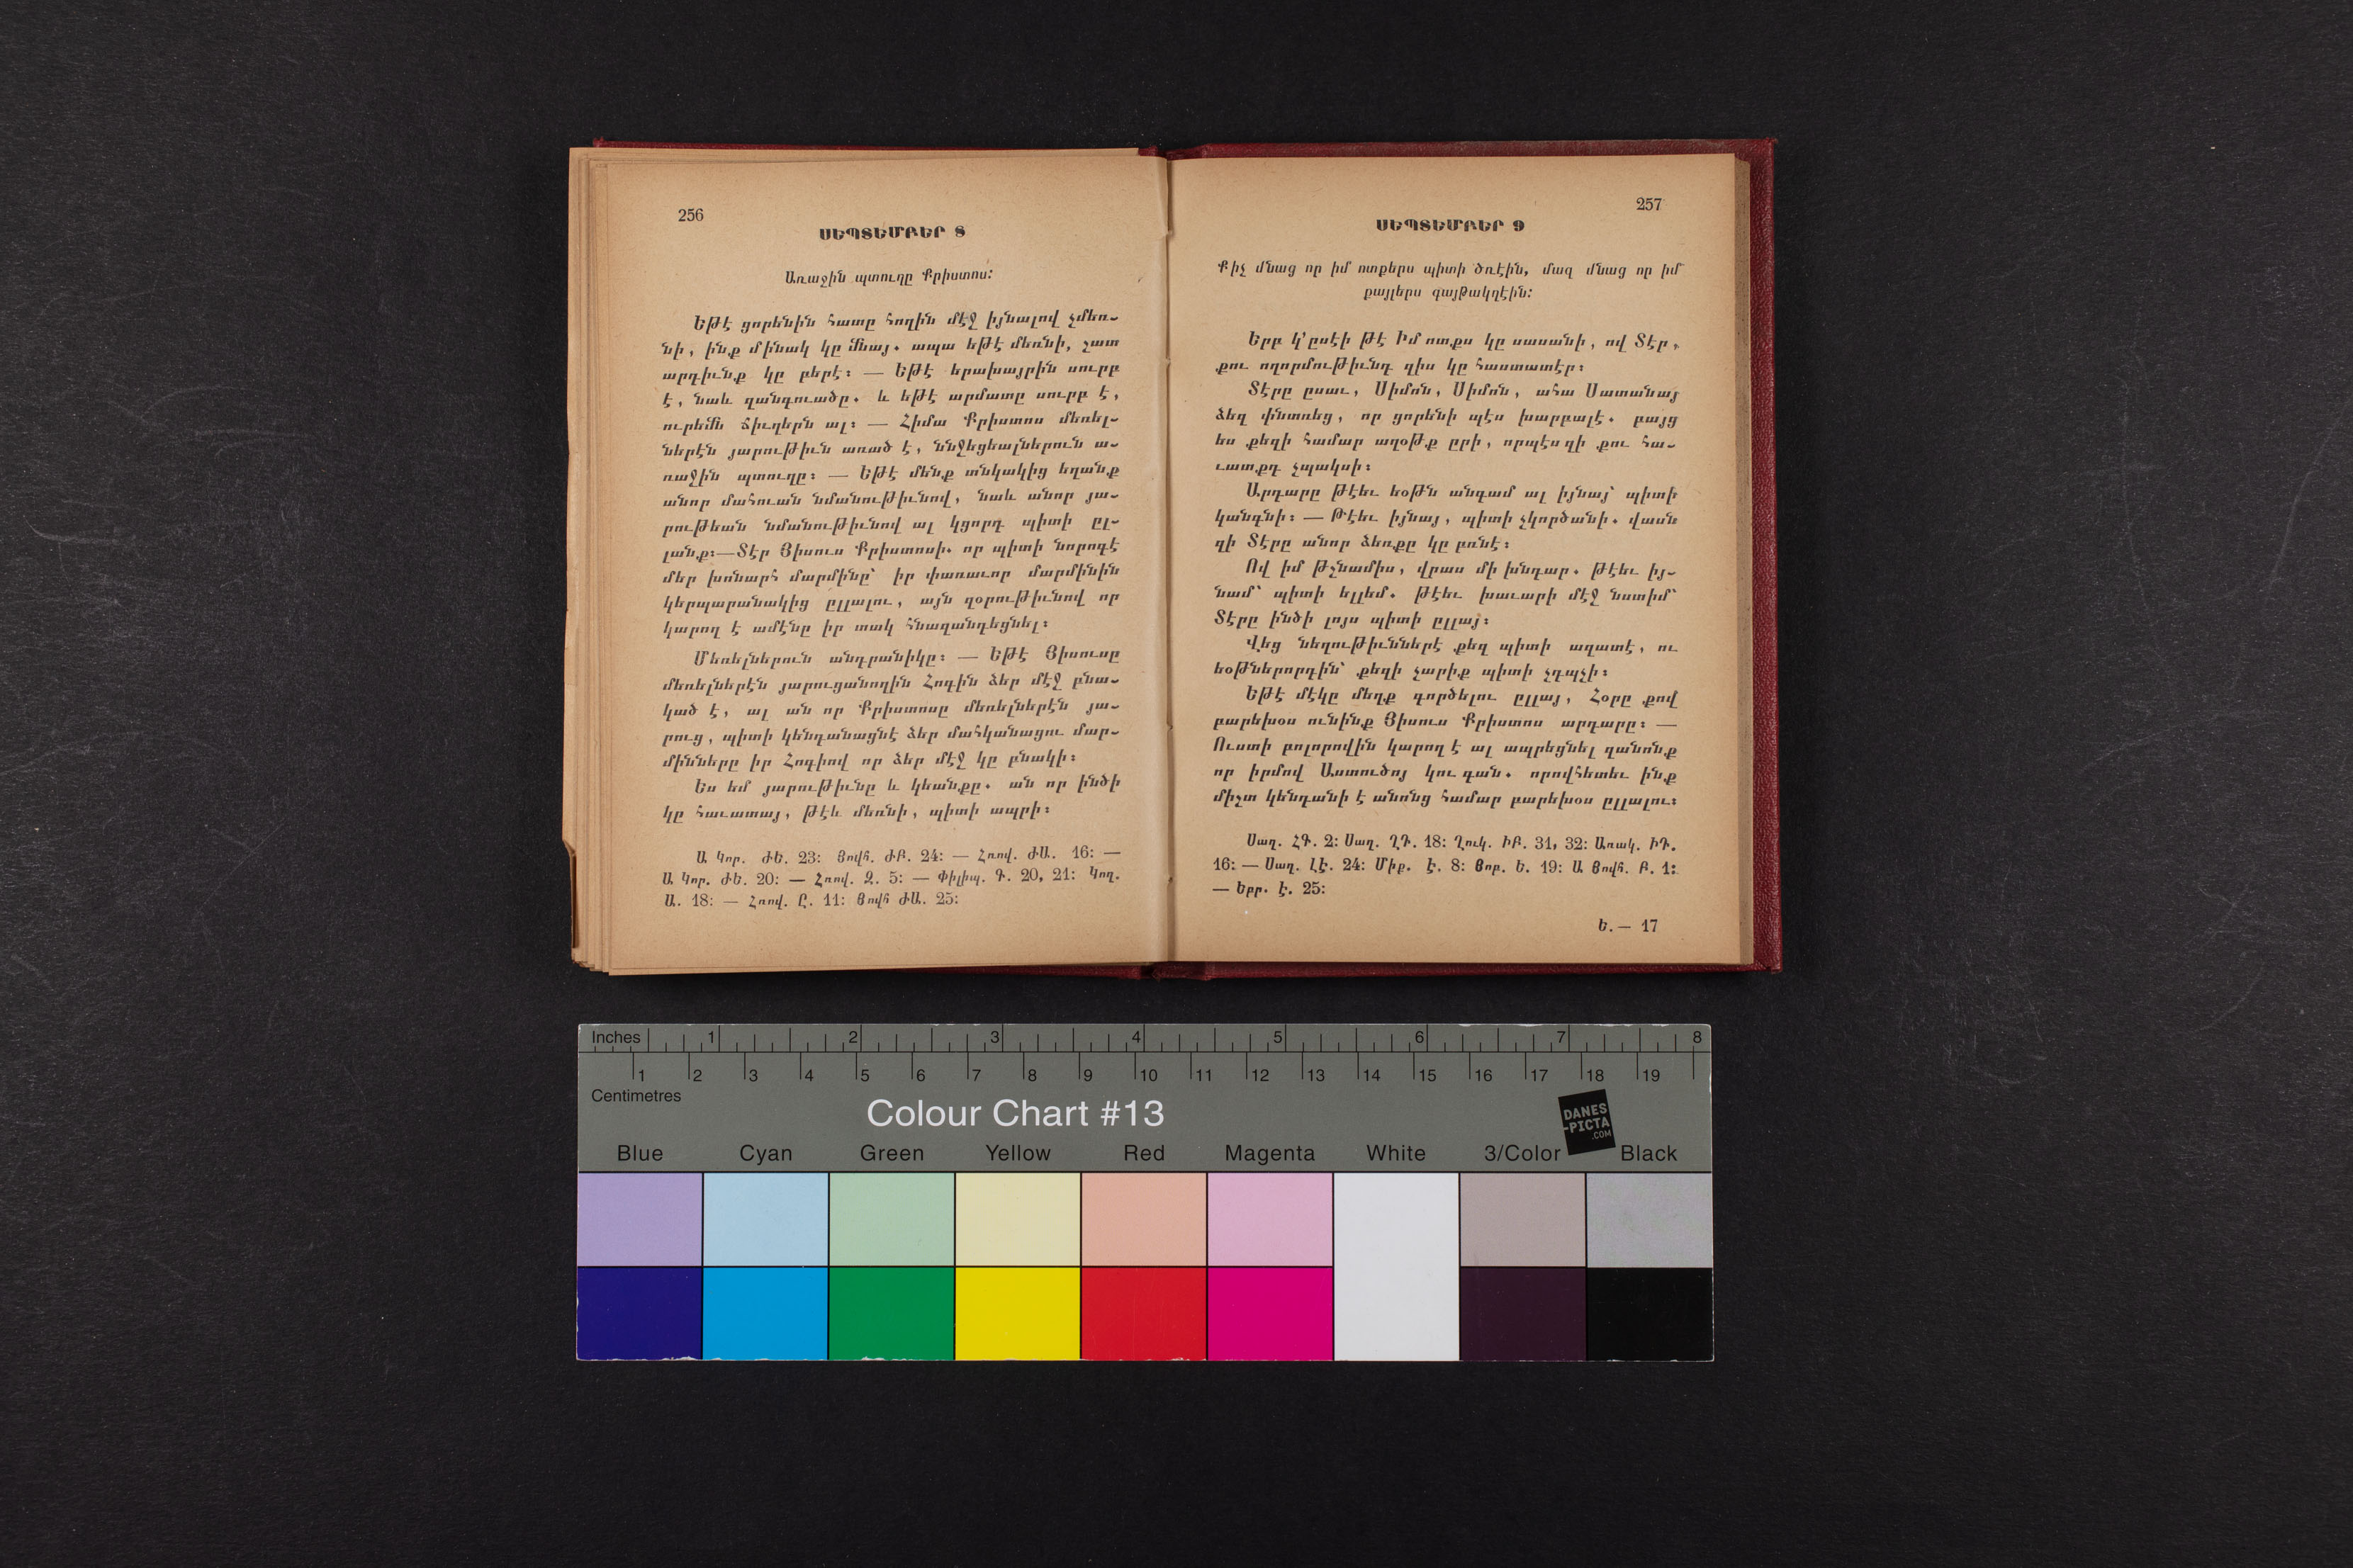 256
ՍԵՊՏԵՄԲԵՐ 8
Առաջին պտուղը Քրիստոս։
Եթէ ցորենին հատը հողին մէջ իյնալով չմեռ-
նի, ինք մինակ կը մնայ. ապա եթէ մեռնի, շատ
արդիւնք կը բերէ։ — Եթէ երախայրին սուրբ
է, նաև զանգուածը. և եթէ արմատը սուրբ է,
ուրեմն ճիւղերն ալ։ — Հիմա Քրիստոս մեռել-
ներէն յարութիւն առած է, ննջեցեալներուն ա-
ռաջին պտուղը։ — Եթէ մենք տնկակից եղանք
անոր մահուան նմանութիւնով, նաև անոր յա-
րութեան նմանութիւնով ալ կցորդ պիտի ըլ-
լանք։—Տէր Յիսուս Քրիստոսի. որ պիտի նորոգէ
մեր խոնարհ մարմինը՝ իր փառաւոր մարմինին
կերպարանակից ըլլալու, այն զօրութիւնով որ
կարող է ամէնը իր տակ հնազանդեցնել։
Մեռելներուն անդրանիկը։ — Եթէ Յիսուսը
մեռելներէն յարուցանողին Հոգին ձեր մէջ բնա-
կած է, ալ ան որ Քրիստոսը մեռելներէն յա-
րուց, պիտի կենդանացնէ ձեր մահկանացու մար-
մինները իր Հոգիով որ ձեր մէջ կը բնակի։
Ես եմ յարութիւնը և կեանքը. ան որ ինծի
կը հաւատայ, թէև մեռնի, պիտի ապրի։
Ա Կոր. ԺԵ. 23։ Յովհ. ԺԲ. 24։ — Հռով. ԺԱ. 16։ —
Ա Կոր. ԺԵ. 20։ — Հռով. Զ. 5։ — Փիլիպ. Գ. 20, 21։ Կող.
Ա. 18։ — Հռով. Ը. 11։ Յովհ ԺԱ. 25։
257
ՍԵՊՏԵՄԲԵՐ 9
Քիչ մնաց որ իմ ոտքերս պիտի ծռէին, մազ մնաց որ իմ
քայլերս գայթակղէին։
Երբ կ՚ըսէի թէ Իմ ոտքս կը սասանի, ով Տէր,
քու ողորմութիւնդ զիս կը հաստատէր։
Տէրը ըսաւ, Սիմոն, Սիմոն, ահա Սատանայ
ձեզ փնտռեց, որ ցորենի պէս խարբալէ. բայց
ես քեզի համար աղօթք ըրի, որպէս զի քու հա-
ւատքդ չպակսի։
Արդարը թէեւ եօթն անգամ ալ իյնայ՝ պիտի
կանգնի։ — Թէեւ իյնայ, պիտի չկործանի. վասն
զի Տէրը անոր ձեռքը կը բռնէ։
Ով իմ թշնամիս, վրաս մի խնդար. թէեւ իյ-
նամ՝ պիտի ելլեմ. թէեւ խաւարի մէջ նստիմ՝
Տէրը ինծի լոյս պիտի ըլլայ։
Վեց նեղութիւններէ քեզ պիտի ազատէ, ու
եօթներորդին՝ քեզի չարիք պիտի չդպչի։
Եթէ մէկը մեղք գործելու ըլլայ, Հօրը քով
բարեխօս ունինք Յիսուս Քրիստոս արդարը։ —
Ուստի բոլորովին կարող է ալ ապրեցնել զանոնք
որ իրմով Աստուծոյ կու գան. որովհետեւ ինք
միշտ կենդանի է անոնց համար բարեխօս ըլլալու։
Սաղ. ՀԳ. 2։ Սաղ. ՂԴ. 18։ Ղուկ. ԻԲ. 31, 32։ Առակ. ԻԴ.
16։ — Սաղ. ԼԷ. 24։ Միք. Է. 8։ Յոբ. Ե. 19։ Ա Յովհ. Բ. 1։
— Եբր. Է. 25։
Ե. — 17
Inches 1 2 3 4 5 6 7 8
1 2 3 4 5 6 7 8 9 10 11 12 13 14 15 16 17 18 19
Centimetres
Colour Chart #13
DANES
-PICTA
.COM
Blue Cyan Green Yellow Red Magenta White 3/Color Black